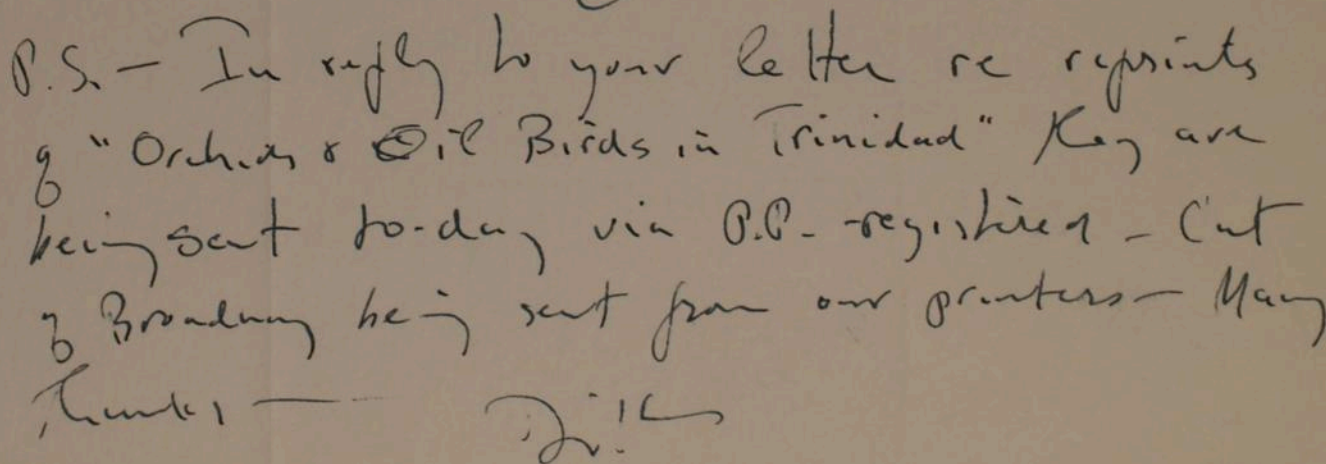 P.S. — In reply to your letter re reprints
of "Orchids & Oil Birds in Trinidad" they are
being sent to-day via P.P. - registered — Cut
of Broadway being sent from our printers — Many
Thanks —